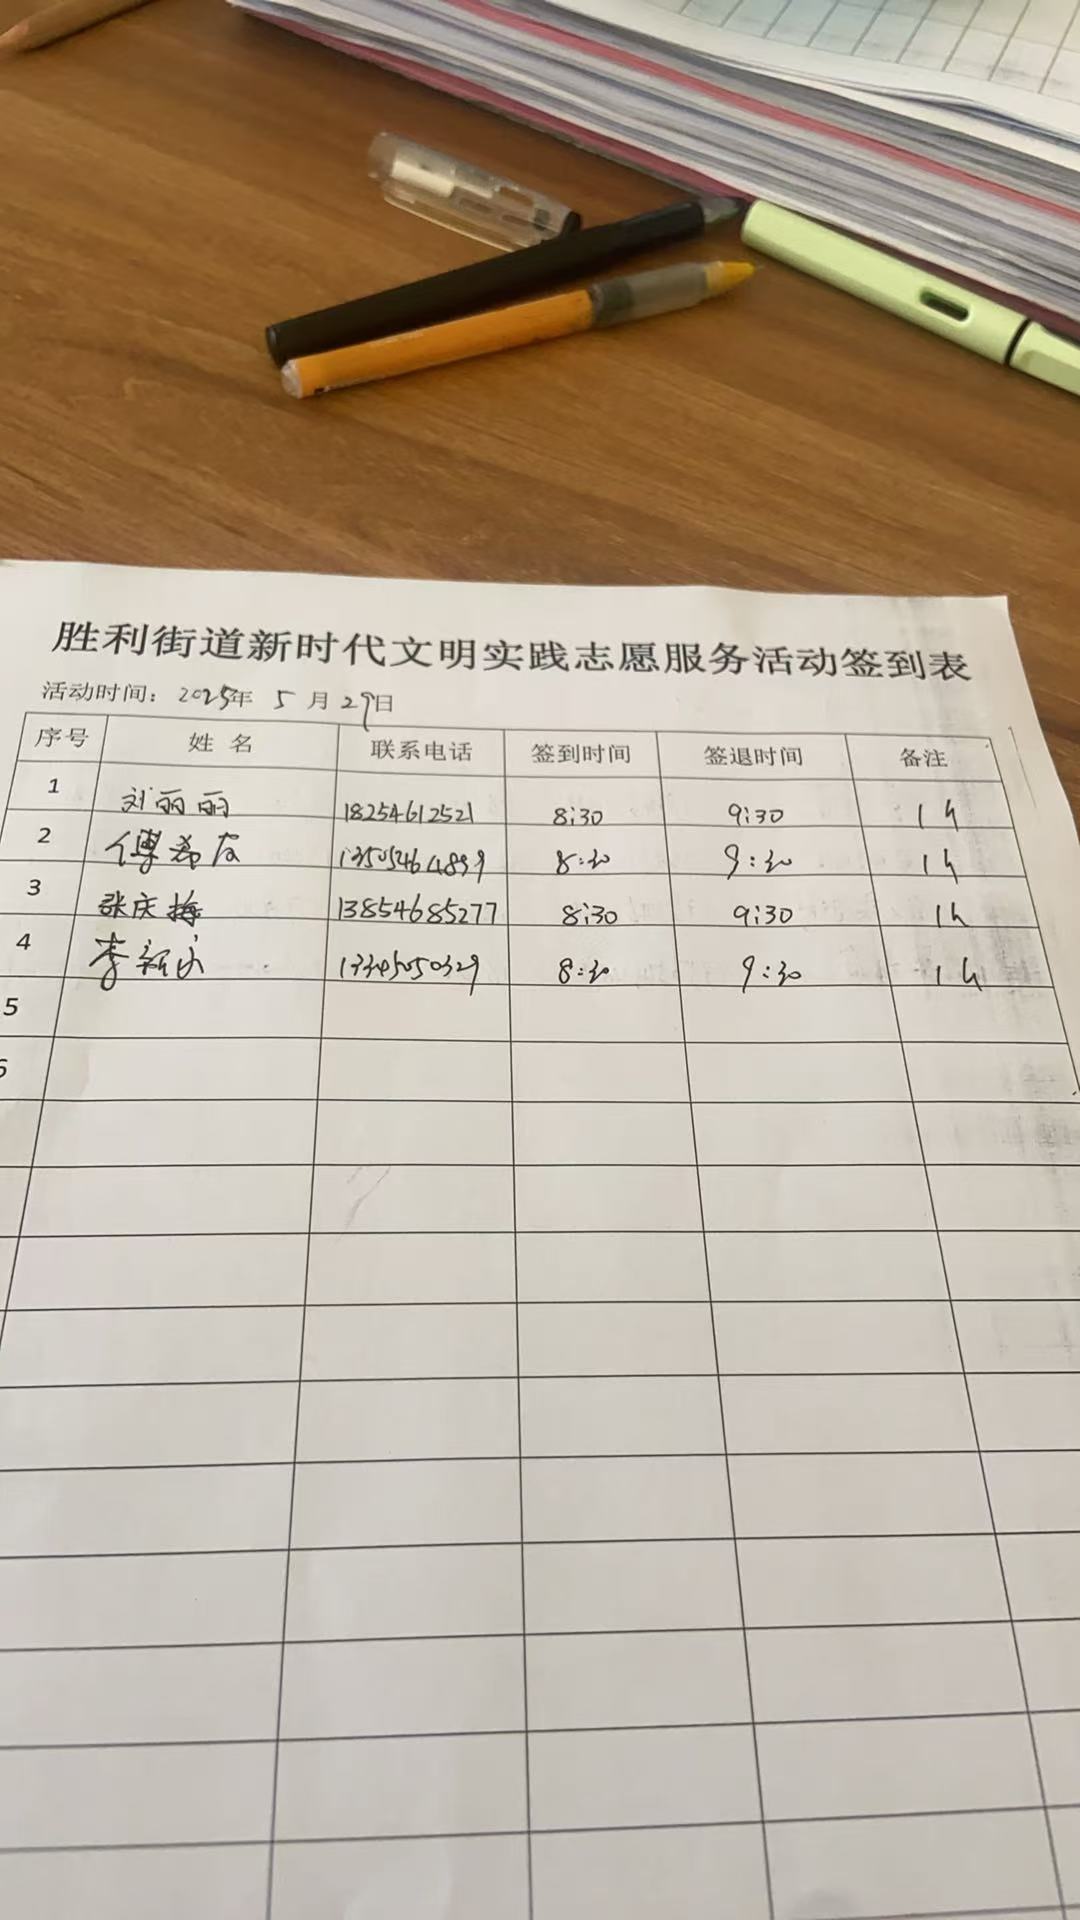 胜利街道新时代文明实践志愿服务活动签到表
活动时间：2025年 5 月 29日
序号 姓 名 联系电话 签到时间 签退时间 备注
1 刘丽丽 18254612521 8:30 9:30 1h
2 傅希友 13505464899 8:30 9:30 1h
3 张庆梅 13854685277 8:30 9:30 1h
4 李新 8:30 9:30 1h
5
6